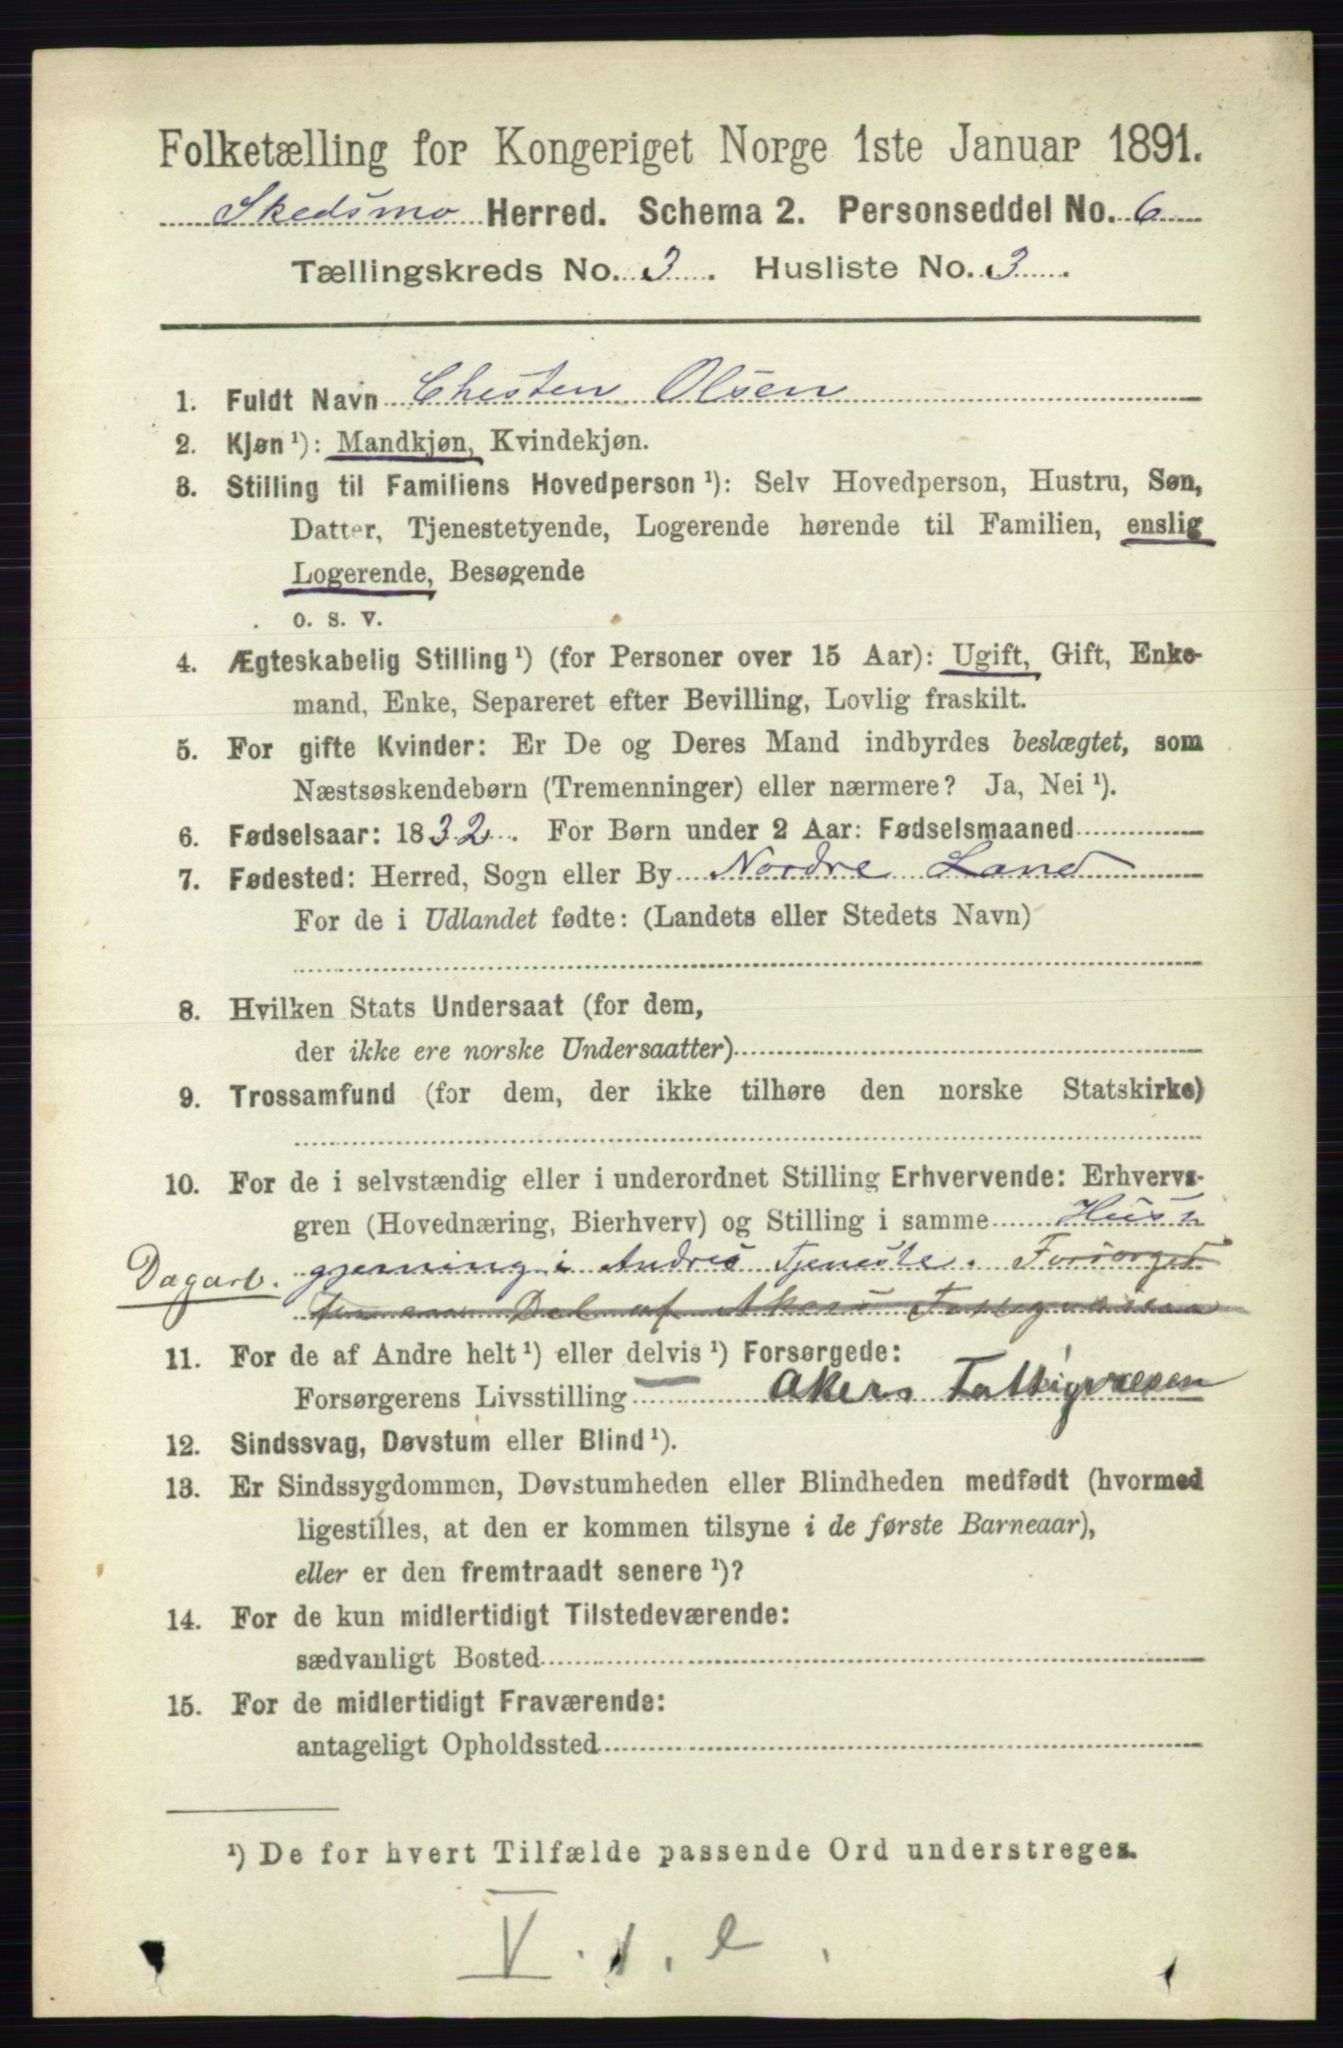 Folketælling for Kongeriget Norge 1ste Januar 1891.
Skedsmo Herred. Schema 2. Personseddel No. 6
Tællingskreds No. 3. Husliste No. 3.
1. Fuldt Navn Chesten Olsen
2. Kjøn ¹): Mandkjøn, Kvindekjøn.
3. Stilling til Familiens Hovedperson ¹): Selv Hovedperson, Hustru, Søn,
Datter, Tjenestetyende, Logerende hørende til Familien, enslig
Logerende, Besøgende
o. s. v.
4. Ægteskabelig Stilling ¹) (for Personer over 15 Aar): Ugift, Gift, Enke-
mand, Enke, Separeret efter Bevilling, Lovlig fraskilt.
5. For gifte Kvinder: Er De og Deres Mand indbyrdes beslægtet, som
Næstsøskendebørn (Tremenninger) eller nærmere? Ja, Nei ¹).
6. Fødselsaar: 1832. For Børn under 2 Aar: Fødselsmaaned
7. Fødested: Herred, Sogn eller By Nordre Land
For de i Udlandet fødte: (Landets eller Stedets Navn)
8. Hvilken Stats Undersaat (for dem,
der ikke ere norske Undersaatter)
9. Trossamfund (for dem, der ikke tilhøre den norske Statskirke)
10. For de i selvstændig eller i underordnet Stilling Erhvervende: Erhvervs-
gren (Hovednæring, Bierhverv) og Stilling i samme Hus
Dagarb. gjerning i Andres Tjeneste. Forsørget
for en Del af Akers Fattigvæsen
11. For de af Andre helt ¹) eller delvis ¹) Forsørgede:
Forsørgerens Livsstilling Akers Fattigvæsen
12. Sindssvag, Døvstum eller Blind ¹).
13. Er Sindssygdommen, Døvstumheden eller Blindheden medfødt (hvormed
ligestilles, at den er kommen tilsyne i de første Barneaar),
eller er den fremtraadt senere ¹)?
14. For de kun midlertidigt Tilstedeværende:
sædvanligt Bosted
15. For de midlertidigt Fraværende:
antageligt Opholdssted
¹) De for hvert Tilfælde passende Ord understreges.
V. 1. e.